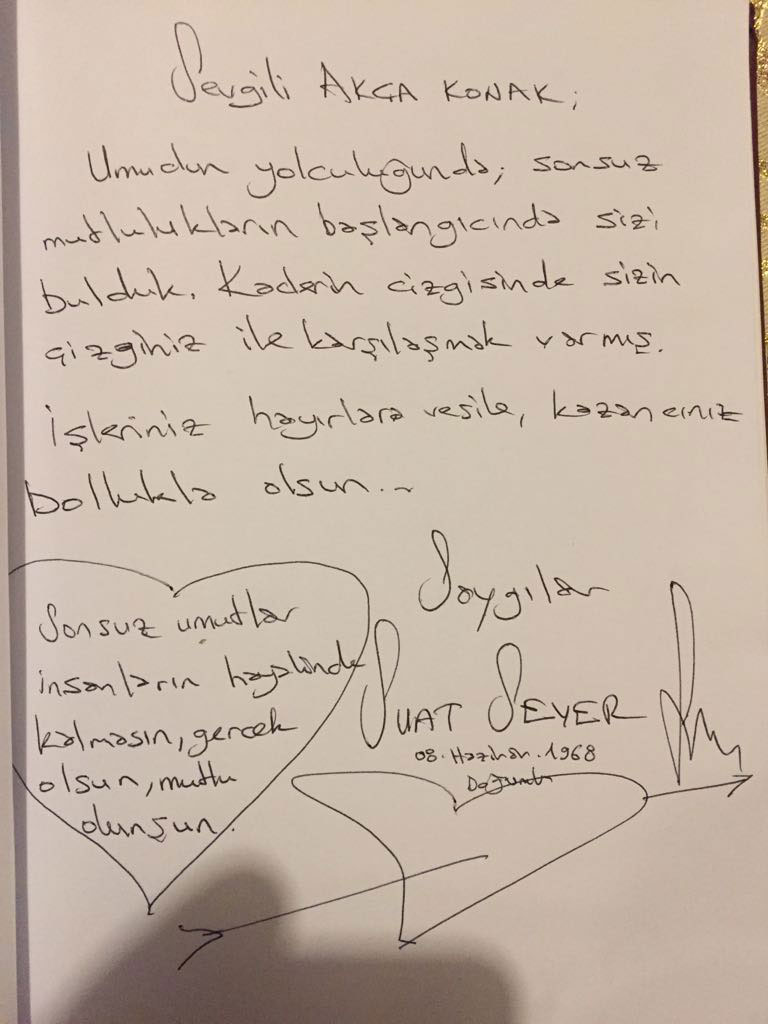 Sevgili AKÇA KONAK;
Umudun yolculuğunda; sonsuz
mutlulukların başlangıcında sizi
bulduk. Kaderin çizgisinde sizin
çizginiz ile karşılaşmak varmış.
İşleriniz hayırlara vesile, kazancınız
bollukla olsun...
Saygılar
SUAT SEYER
08. Haziran. 1968
Sonsuz umutlar
insanların hayalinde
kalmasın, gerçek
olsun, mutlu
olunsun.